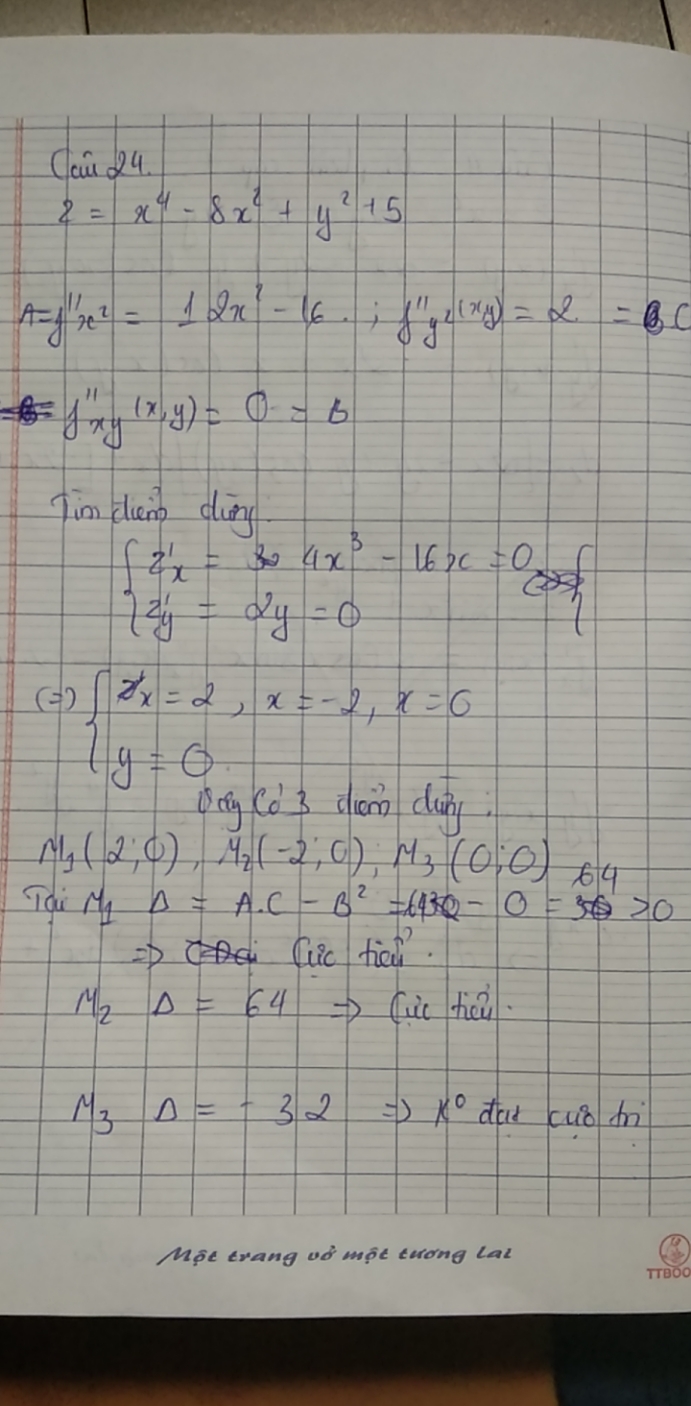 Câu 24.
z = x⁴ - 8x² + y² + 5
A = f''x² = 12x² - 16 ; f''y² (x,y) = 2 = C
f''xy (x,y) = 0 = B
Tìm điểm dừng
{ z'x = 4x³ - 16x = 0
{ z'y = 2y = 0
(=) { x = 2, x = -2, x = 0
{ y = 0
Vậy có 3 điểm dừng :
M1 (2;0), M2 (-2;0), M3 (0;0)
64
Tại M1 Δ = A.C - B² = - 0 = > 0
=> Cực tiểu.
M2 Δ = 64 => Cực tiểu.
M3 Δ = - 32 => K⁰ đạt cực trị
Một trang vở một tương lai
TTBOO